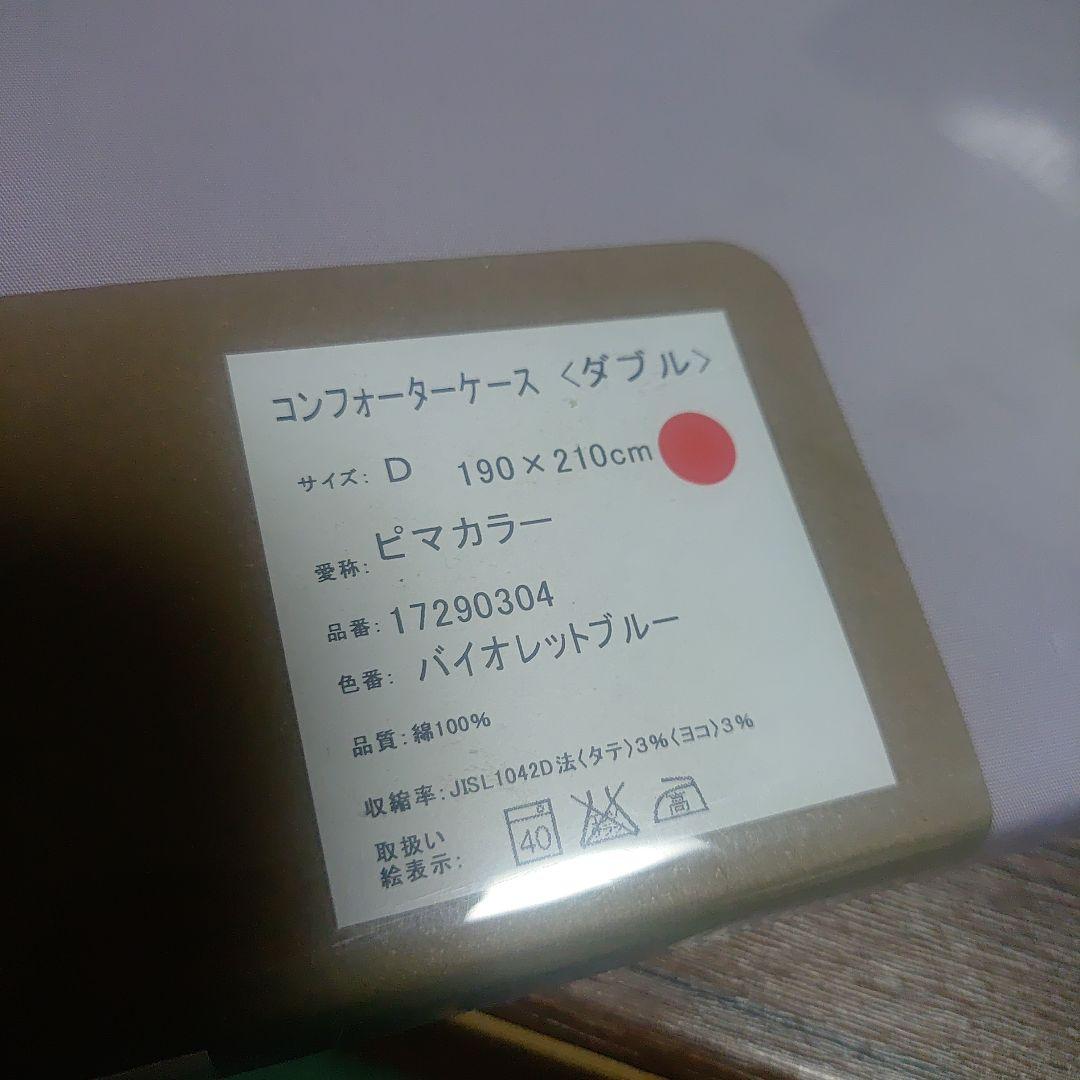 コンフォーターケース〈ダブル〉
サイズ: D 190×210cm
愛称: ピマカラー
品番: 17290304
色番: バイオレットブルー
品質: 綿100%
収縮率: JISL1042D法〈タテ〉3%〈ヨコ〉3%
取扱い
絵表示:
40 高